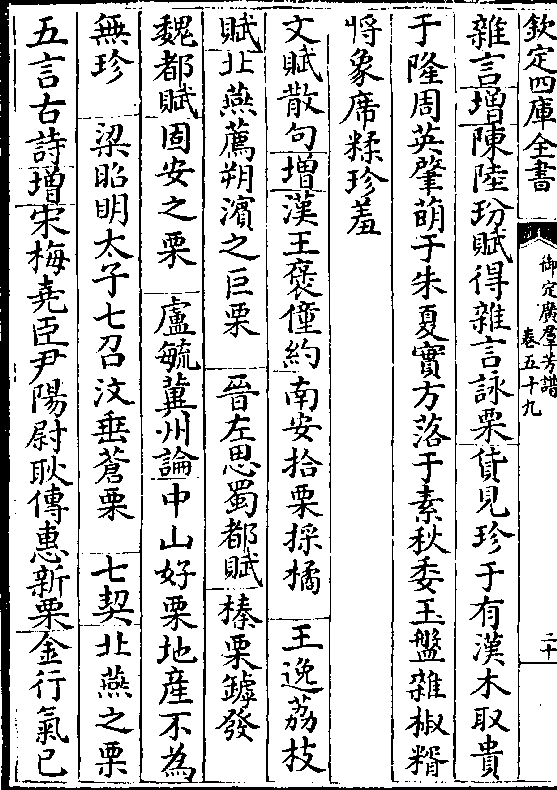 欽定四庫全書
御定廣羣芳譜
卷五十九
二十
雜言增陳陸玢賦得雜言詠栗貨見珍于有漢木取貴
于隆周英肇萌于朱夏實方落于素秋委玉盤雜椒糈
将象席糅珍羞
文賦散句增漢王褒僮約南安拾栗採橘　王逸荔枝
賦北燕薦朔濱之巨栗　晉左思蜀都賦榛栗罅發
魏都賦固安之栗　盧毓冀州論中山好栗地産不為
無珍　梁昭明太子七召汶垂蒼栗　七契北燕之栗
五言古詩增宋梅堯臣尹陽尉耿傳惠新栗金行氣已